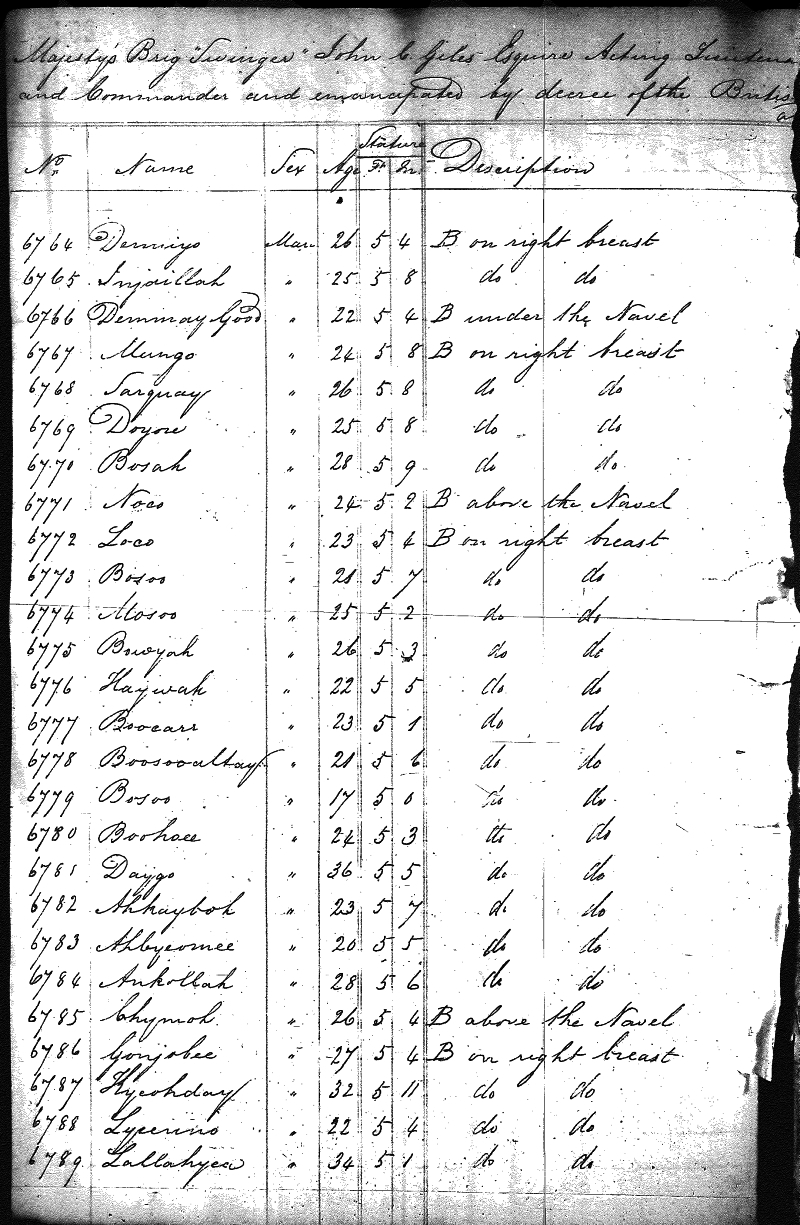 Majesty's Brig "Swinger" John C. Giles Esquire Acting Lieutena
and Commander and emancipated by decree of the British
a
No Name Sex Age Stature Ft In Description
6764 Demiyo Man 26 5 4 B on right breast
6765 Injaillah " 25 5 8 do do
6766 Demmay Good " 22 5 4 B under the Navel
6767 Mungo " 24 5 8 B on right breast
6768 Sarquay " 26 5 8 do do
6769 Doyore " 25 5 8 do do
6770 Bosah " 28 5 9 do do
6771 Noco " 24 5 2 B above the Navel
6772 Loco " 23 5 4 B on right breast
6773 Bosoo " 21 5 7 do do
6774 Mosoo " 25 5 2 do do
6775 Buoyah " 26 5 3 do do
6776 Haywah " 22 5 5 do do
6777 Boocarr " 23 5 1 do do
6778 Boosooaltay " 21 5 6 do do
6779 Bosoo " 17 5 0 do do
6780 Boohaee " 24 5 3 do do
6781 Daygo " 36 5 5 do do
6782 Ahkayboh " 23 5 7 do do
6783 Ahbyeomee " 20 5 5 do do
6784 Ankollah " 28 5 6 do do
6785 Chymoh " 26 5 4 B above the Navel
6786 Gonjobee " 27 5 4 B on right breast
6787 Hyeohday " 32 5 11 do do
6788 Lycerino " 22 5 4 do do
6789 Lallahyea " 34 5 1 do do